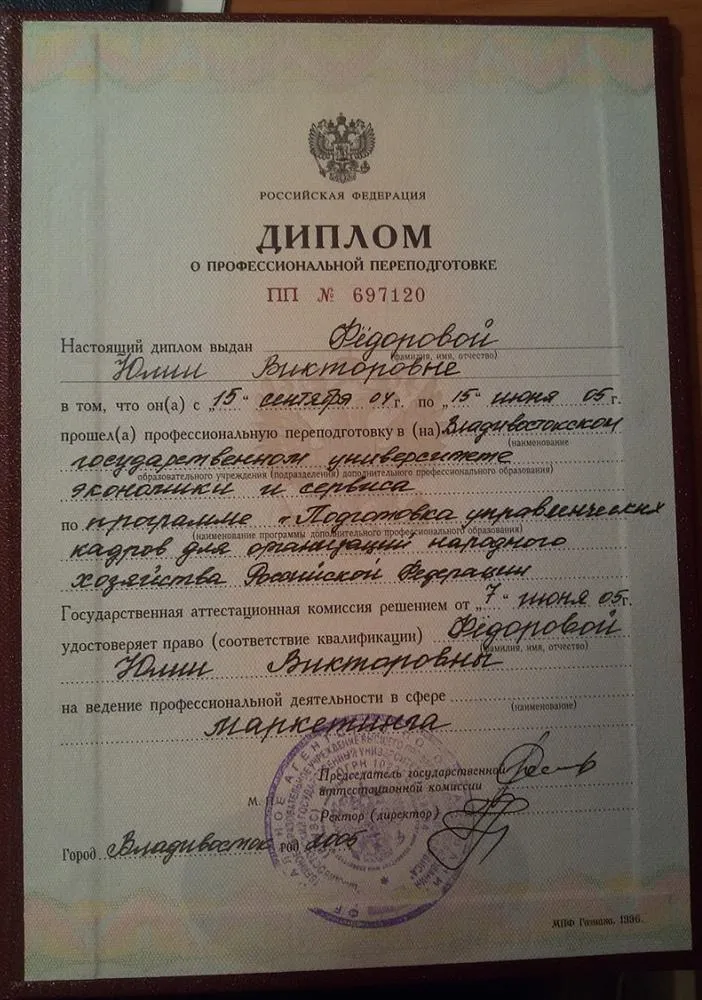 РОССИЙСКАЯ ФЕДЕРАЦИЯ
ДИПЛОМ
О ПРОФЕССИОНАЛЬНОЙ ПЕРЕПОДГОТОВКЕ
ПП № 697120
Настоящий диплом выдан Фёдоровой
(фамилия, имя, отчество)
Юлии Викторовне
в том, что он(а) с „15“ сентября 04 г. по „15“ июня 05 г.
прошел(а) профессиональную переподготовку в (на) Владивостокском
(наименование
государственном университете
образовательного учреждения (подразделения) дополнительного профессионального образования)
экономики и сервиса
по программе „Подготовка управленческих
(наименование программы дополнительного профессионального образования)
кадров для организаций народного
хозяйства Российской Федерации
Государственная аттестационная комиссия решением от „7“ июня 05 г.
удостоверяет право (соответствие квалификации) Фёдоровой
(фамилия, имя, отчество)
Юлии Викторовны
на ведение профессиональной деятельности в сфере
(наименование)
маркетинга
Председатель государственной
аттестационной комиссии
М. П.
Ректор (директор)
Город Владивосток год 2005
МПФ Гознака. 1996.